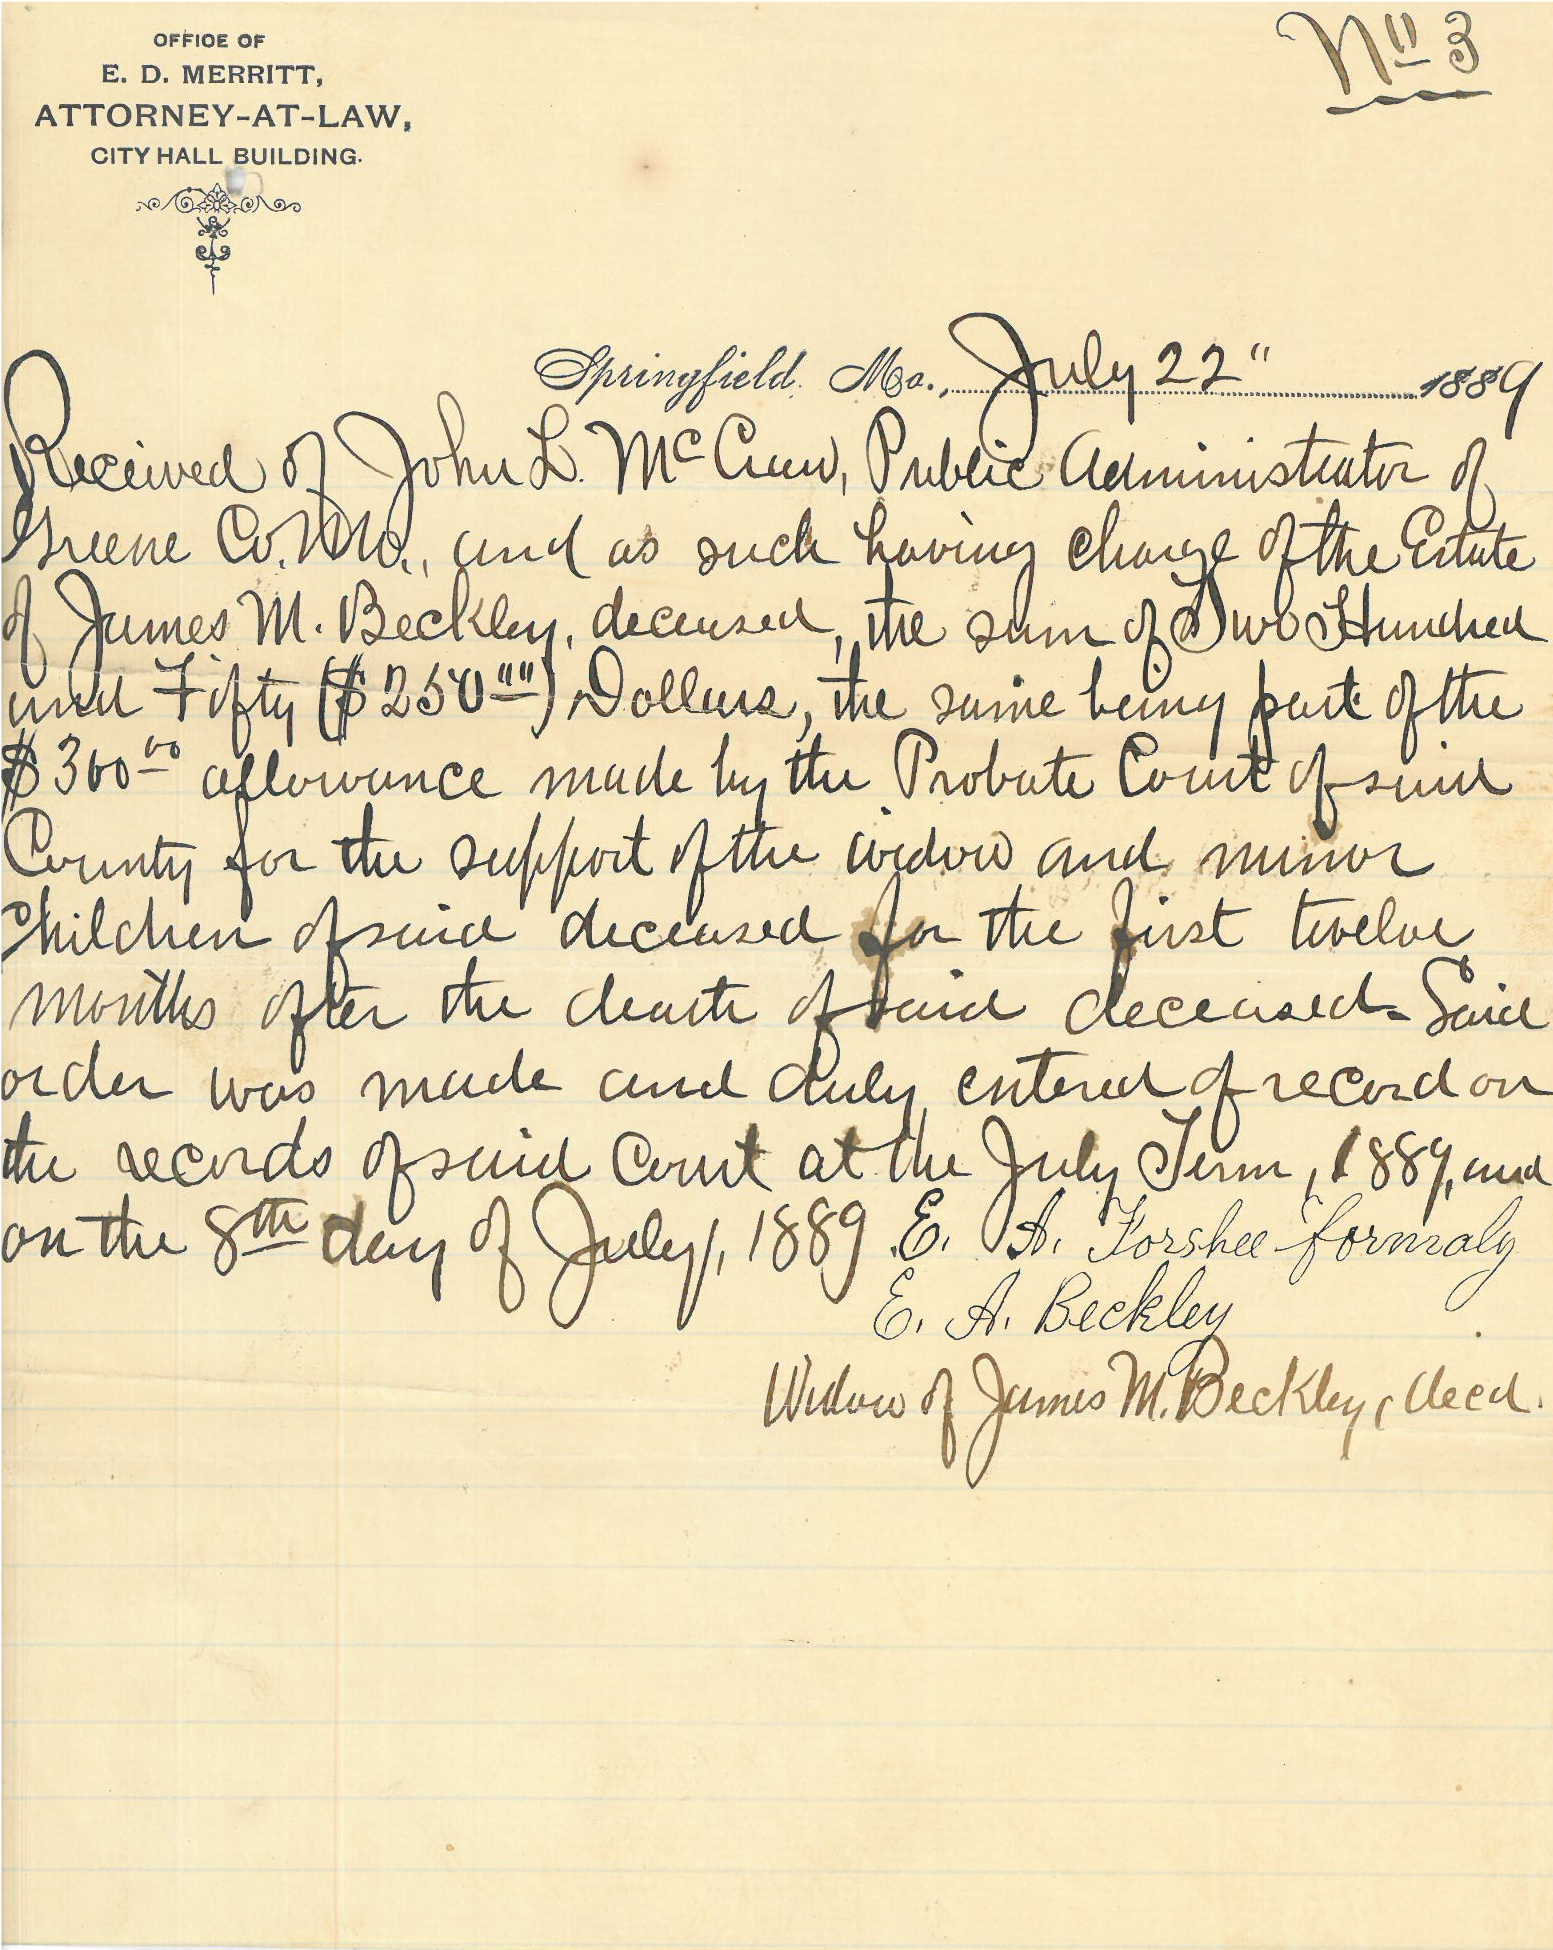 OFFICE OF
E. D. MERRITT,
ATTORNEY-AT-LAW,
CITY HALL BUILDING.
No 3
Springfield, Mo., July 22" 1889
Received of John L. McCraw, Public Administrator of
Greene Co. Mo., and as such having charge of the Estate
of James M. Beckley, deceased, the sum of Two Hundred
and Fifty ($250 00) Dollars, the same being part of the
$300 00 allowance made by the Probate Court of said
County for the support of the widow and minor
children of said deceased for the first twelve
months after the death of said deceased. Said
order was made and duly entered of record on
the records of said Court at the July Term, 1889, and
on the 8th day of July, 1889 E. A. Forshee formaly
E. A. Beckley
Widow of James M. Beckley, decd.